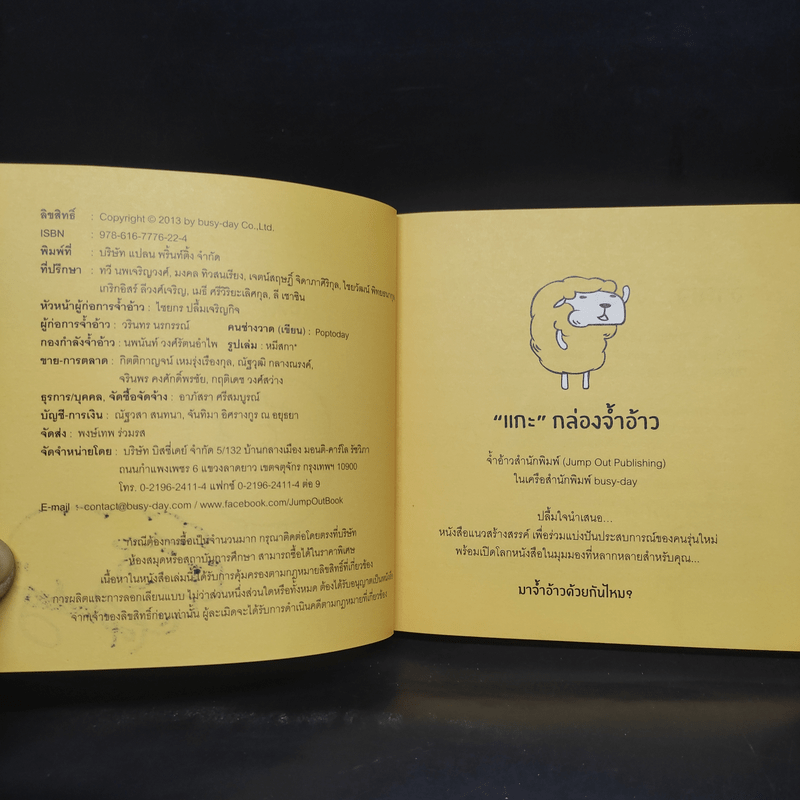 ลิขสิทธิ์ : Copyright © 2013 by busy-day Co.,Ltd.
ISBN : 978-616-7776-22-4
พิมพ์ที่ : บริษัท แปลน พริ้นท์ติ้ง จำกัด
ที่ปรึกษา : ทวี นพเจริญวงศ์, มงคล ทิวสนเรียง, เจตน์สฤษฎิ์ จิดาภาศิริกุล, ไชยวัฒน์ พิทยธนากุล
เกริกอิสร์ ลีวงศ์เจริญ, เมธี ศรีวิริยะเลิศกุล, ลี เซาชิน
หัวหน้าผู้ก่อการจ้ำอ้าว : ไชยกร ปลื้มเจริญกิจ
ผู้ก่อการจ้ำอ้าว : วรินทร นรกรรณ์ คนช่างวาด (เขียน) : Poptoday
กองกำลังจ้ำอ้าว : นพนันท์ วงศ์รัตนอำไพ รูปเล่ม : หมีสกา*
ขาย-การตลาด : กิตติกาญจน์ เหมรุ่งเรืองกุล, ณัฐวุฒิ กลางณรงค์,
จรินพร คงศักดิ์พรชัย, กฤติเดช วงศ์สว่าง
ธุรการ/บุคคล, จัดซื้อจัดจ้าง : อาภัสรา ศรีสมบูรณ์
บัญชี-การเงิน : ณัฐวสา สนทนา, จันทิมา อิศรางกูร ณ อยุธยา
จัดส่ง : พงษ์เทพ ร่วมรส
จัดจำหน่ายโดย : บริษัท บิสซี่เดย์ จำกัด 5/132 บ้านกลางเมือง มอนติ-คาร์โล รัชวิภา
ถนนกำแพงเพชร 6 แขวงลาดยาว เขตจตุจักร กรุงเทพฯ 10900
โทร. 0-2196-2411-4 แฟกซ์ 0-2196-2411-4 ต่อ 9
E-mail : contact@busy-day.com / www.facebook.com/JumpOutBook
กรณีต้องการสั่งซื้อเป็นจำนวนมาก กรุณาติดต่อโดยตรงที่บริษัท
ห้องสมุดหรือสถาบันการศึกษา สามารถซื้อได้ในราคาพิเศษ
เนื้อหาในหนังสือเล่มนี้ได้รับการคุ้มครองตามกฎหมายลิขสิทธิ์ที่เกี่ยวข้อง
การผลิตและการลอกเลียนแบบ ไม่ว่าส่วนหนึ่งส่วนใดหรือทั้งหมด ต้องได้รับอนุญาตเป็นหนังสือ
จากเจ้าของลิขสิทธิ์ก่อนเท่านั้น ผู้ละเมิดจะได้รับการดำเนินคดีตามกฎหมายที่เกี่ยวข้อง
“แกะ” กล่องจ้ำอ้าว
จ้ำอ้าวสำนักพิมพ์ (Jump Out Publishing)
ในเครือสำนักพิมพ์ busy-day
ปลื้มใจนำเสนอ...
หนังสือแนวสร้างสรรค์ เพื่อร่วมแบ่งปันประสบการณ์ของคนรุ่นใหม่
พร้อมเปิดโลกหนังสือในมุมมองที่หลากหลายสำหรับคุณ...
มาจ้ำอ้าวด้วยกันไหม?